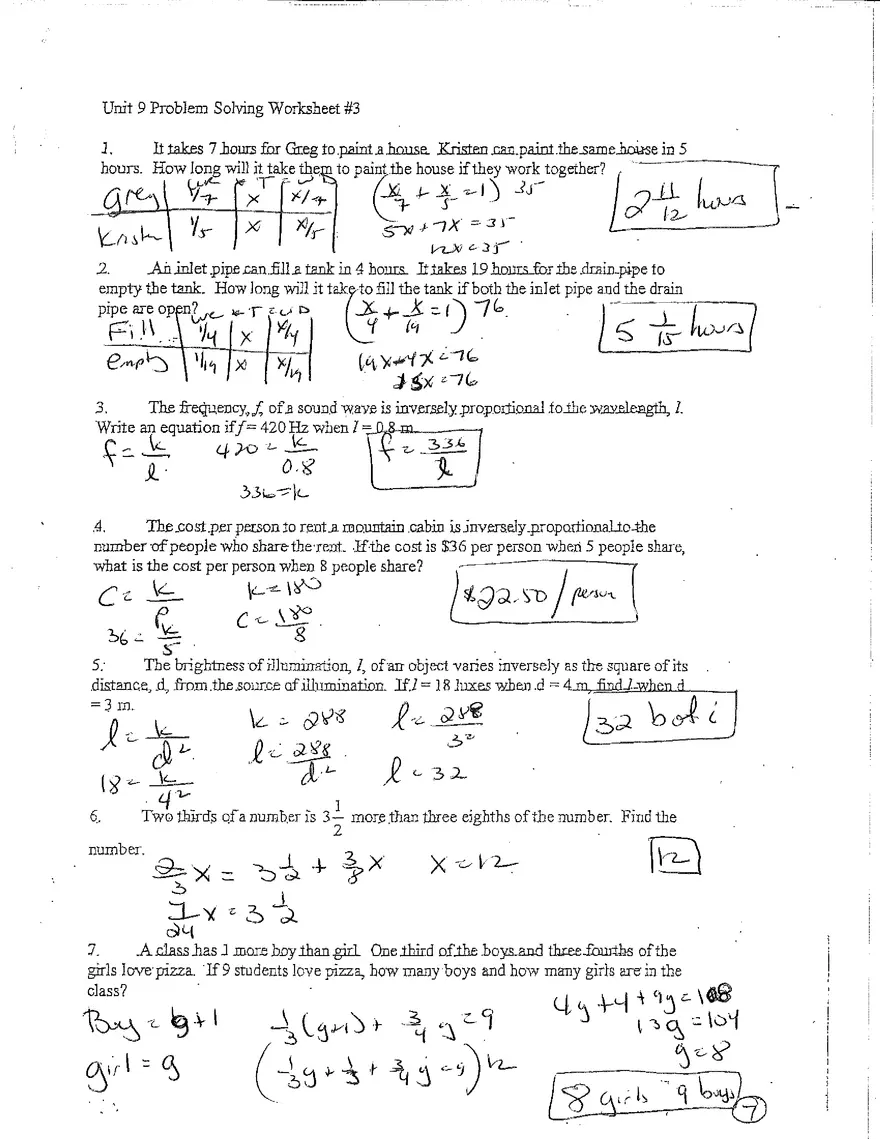 Unit 9 Problem Solving Worksheet #3
1. It takes 7 hours for Greg to paint a house. Kristen can paint the same house in 5
hours. How long will it take them to paint the house if they work together?
T
Greg 1/7 x x/7
1/5 x x/5
(x/7 + x/5 = 1) 35
5x + 7x = 35
12x = 35
2 11/12 hours
2. An inlet pipe can fill a tank in 4 hours. It takes 19 hours for the drain pipe to
empty the tank. How long will it take to fill the tank if both the inlet pipe and the drain
pipe are open?
T = W D
Fill 1/4 x x/4
empty 1/19 x x/19
(x/4 + x/19 = 1) 76
15x = 76
5 1/15 hours
3. The frequency, f, of a sound wave is inversely proportional to the wavelength, l.
Write an equation if f = 420 Hz when l = 0.8 m.
f = k/l 420 = k/0.8 f = 336/l
336 = k
4. The cost per person to rent a mountain cabin is inversely proportional to the
number of people who share the rent. If the cost is $36 per person when 5 people share,
what is the cost per person when 8 people share?
C = k/P k = 180 $22.50/person
36 = k/5 C = 180/8
5. The brightness of illumination, l, of an object varies inversely as the square of its
distance, d, from the source of illumination. If l = 18 luxes when d = 4 m, find l when d
= 3 m.
l = k/d² k = 288 l = 288/3² 32
18 = k/4² l = 288/d² l = 32
6. Two thirds of a number is 3 1/2 more than three eighths of the number. Find the
number.
2/3 x = 3 1/2 + 3/8 x x = 12 12
7/24 x = 3 1/2
7. A class has 1 more boy than girl. One third of the boys and three fourths of the
girls love pizza. If 9 students love pizza, how many boys and how many girls are in the
class?
Boy = g+1 1/3(g+1) + 3/4 g = 9 4g+4+9g=108
13g = 104
girl = g (1/3 g + 1/3 + 3/4 g = 9) 12 g = 8
8 girls 9 boys
7